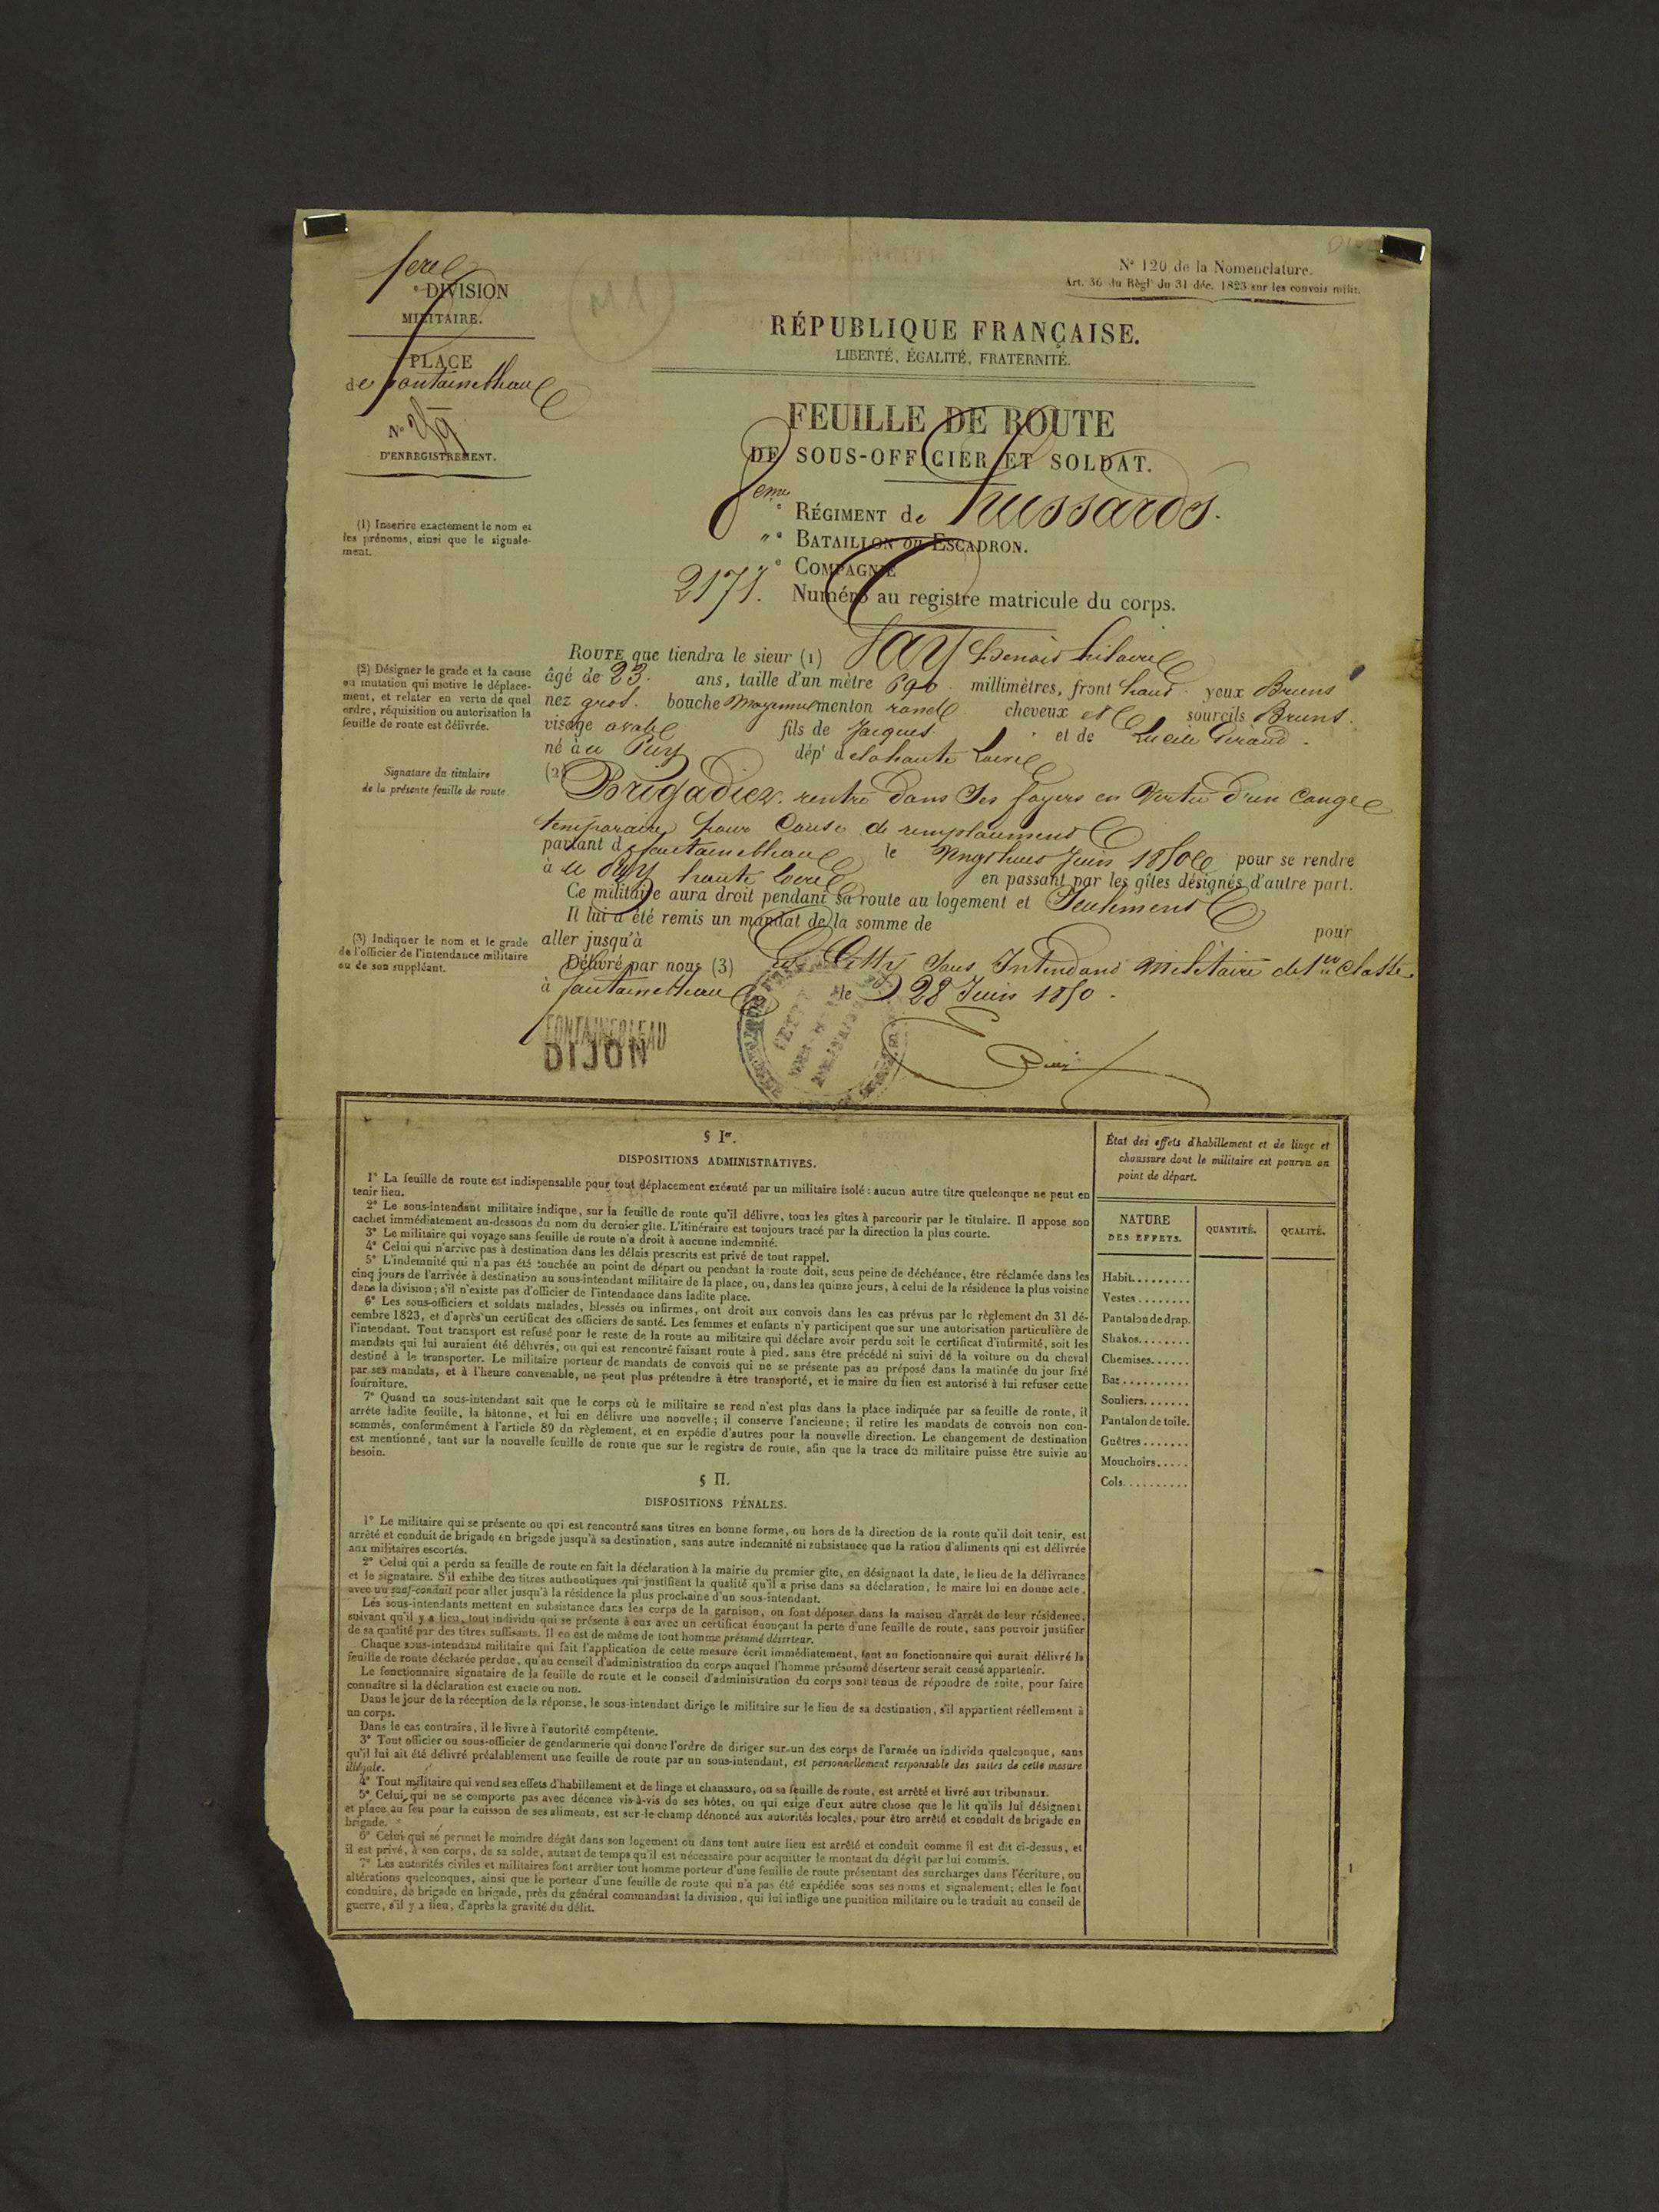 1ere
DIVISION
MILITAIRE.
PLACE
de fontainebleau
N°
D'ENREGISTREMENT.
N° 120 de la Nomenclature.
Art. 36 du Règlt du 31 déc. 1823 sur les convois milit.
RÉPUBLIQUE FRANÇAISE.
LIBERTÉ, ÉGALITÉ, FRATERNITÉ.
FEUILLE DE ROUTE
DE SOUS-OFFICIER ET SOLDAT.
8eme RÉGIMENT de hussards.
" BATAILLON ou ESCADRON.
COMPAGNIE
2171. Numéro au registre matricule du corps.
(1) Inserire exactement le nom et
les prénoms, ainsi que le signale-
ment.
(2) Désigner le grade et la cause
ou mutation qui motive le déplace-
ment, et relater en vertu de quel
ordre, réquisition ou autorisation la
feuille de route est délivrée.
Signature du titulaire
de la présente feuille de route
(3) Indiquer le nom et le grade
de l'officier de l'intendance militaire
ou de son suppléant.
ROUTE que tiendra le sieur (1) Jay Benoit hilaire
âgé de 23. ans, taille d'un mètre 690 millimètres, front haut. yeux Bruns
nez gros. bouche moyenne menton rond cheveux et sourcils Bruns.
visage ovale fils de Jacques et de Lucile Giraud.
né à au Puy dépt de la haute Loire
(2) Brigadier. rentre dans Ses foyers en Vertu d'un Conge
temporaire pour Cause de remplacement
partant de fontainebleau le Vingt huit Juin 1850 pour se rendre
à au Puy haute Loire en passant par les gîtes désignés d'autre part.
Ce militaire aura droit pendant sa route au logement et Seulement
Il lui a été remis un mandat de la somme de pour
aller jusqu'à
Délivré par nous (3) Cetty Sous Intendant Militaire de 1ere Classe
à fontainebleau le 28 Juin 1850.
FONTAINEBLEAU
DIJON
§ Ier.
DISPOSITIONS ADMINISTRATIVES.
1° La feuille de route est indispensable pour tout déplacement exécuté par un militaire isolé : aucun autre titre quelconque ne peut en
tenir lieu.
2° Le sous-intendant militaire indique, sur la feuille de route qu'il délivre, tous les gîtes à parcourir par le titulaire. Il appose son
cachet immédiatement au-dessous du nom du dernier gîte. L'itinéraire est toujours tracé par la direction la plus courte.
3° Le militaire qui voyage sans feuille de route n'a droit à aucune indemnité.
4° Celui qui n'arrive pas à destination dans les délais prescrits est privé de tout rappel.
5° L'indemnité qui n'a pas été touchée au point de départ ou pendant la route doit, sous peine de déchéance, être réclamée dans les
cinq jours de l'arrivée à destination au sous-intendant militaire de la place, ou, dans les quinze jours, à celui de la résidence la plus voisine
dans la division ; s'il n'existe pas d'officier de l'intendance dans ladite place.
6° Les sous-officiers et soldats malades, blessés ou infirmes, ont droit aux convois dans les cas prévus par le règlement du 31 dé-
cembre 1823, et d'après un certificat des officiers de santé. Les femmes et enfants n'y participent que sur une autorisation particulière de
l'intendant. Tout transport est refusé pour le reste de la route au militaire qui déclare avoir perdu soit le certificat d'infirmité, soit les
mandats qui lui auraient été délivrés, ou qui est rencontré faisant route à pied, sans être précédé ni suivi de la voiture ou du cheval
destiné à le transporter. Le militaire porteur de mandats de convois qui ne se présente pas au préposé dans la matinée du jour fixé
par ses mandats, et à l'heure convenable, ne peut plus prétendre à être transporté, et le maire du lieu est autorisé à lui refuser cette
fourniture.
7° Quand un sous-intendant sait que le corps où le militaire se rend n'est plus dans la place indiquée par sa feuille de route, il
arrête ladite feuille, la bâtonne, et lui en délivre une nouvelle ; il conserve l'ancienne ; il retire les mandats de convois non con-
sommés, conformément à l'article 89 du règlement, et en expédie d'autres pour la nouvelle direction. Le changement de destination
est mentionné, tant sur la nouvelle feuille de route que sur le registre de route, afin que la trace du militaire puisse être suivie au
besoin.
§ II.
DISPOSITIONS PÉNALES.
1° Le militaire qui se présente ou qui est rencontré sans titres en bonne forme, ou hors de la direction de la route qu'il doit tenir, est
arrêté et conduit de brigade en brigade jusqu'à sa destination, sans autre indemnité ni subsistance que la ration d'aliments qui est délivrée
aux militaires escortés.
2° Celui qui a perdu sa feuille de route en fait la déclaration à la mairie du premier gîte, en désignant la date, le lieu de la délivrance
et le signataire. S'il exhibe des titres authentiques qui justifient la qualité qu'il a prise dans sa déclaration, le maire lui en donne acte,
avec un sauf-conduit pour aller jusqu'à la résidence la plus prochaine d'un sous-intendant.
Les sous-intendants mettent en subsistance dans les corps de la garnison, ou font déposer dans la maison d'arrêt de leur résidence,
suivant qu'il y a lieu, tout individu qui se présente à eux avec un certificat énonçant la perte d'une feuille de route, sans pouvoir justifier
de sa qualité par des titres suffisants. Il en est de même de tout homme présumé déserteur.
Chaque sous-intendant militaire qui fait l'application de cette mesure écrit immédiatement, tant au fonctionnaire qui aurait délivré la
feuille de route déclarée perdue, qu'au conseil d'administration du corps auquel l'homme présumé déserteur serait censé appartenir.
Le fonctionnaire signataire de la feuille de route et le conseil d'administration du corps sont tenus de répondre de suite, pour faire
connaître si la déclaration est exacte ou non.
Dans le jour de la réception de la réponse, le sous-intendant dirige le militaire sur le lieu de sa destination, s'il appartient réellement à
un corps.
Dans le cas contraire, il le livre à l'autorité compétente.
3° Tout officier ou sous-officier de gendarmerie qui donne l'ordre de diriger sur un des corps de l'armée un individu quelconque, sans
qu'il lui ait été délivré préalablement une feuille de route par un sous-intendant, est personnellement responsable des suites de cette mesure
illégale.
4° Tout militaire qui vend ses effets d'habillement et de linge et chaussure, ou sa feuille de route, est arrêté et livré aux tribunaux.
5° Celui qui ne se comporte pas avec décence vis-à-vis de ses hôtes, ou qui exige d'eux autre chose que le lit qu'ils lui désignent
et place au feu pour la cuisson de ses aliments, est sur-le-champ dénoncé aux autorités locales, pour être arrêté et conduit de brigade en
brigade.
6° Celui qui se permet le moindre dégât dans son logement ou dans tout autre lieu est arrêté et conduit comme il est dit ci-dessus, et
il est privé, à son corps, de sa solde, autant de temps qu'il est nécessaire pour acquitter le montant du dégât par lui commis.
7° Les autorités civiles et militaires font arrêter tout homme porteur d'une feuille de route présentant des surcharges dans l'écriture, ou
altérations quelconques, ainsi que le porteur d'une feuille de route qui n'a pas été expédiée sous ses noms et signalement ; elles le font
conduire, de brigade en brigade, près du général commandant la division, qui lui inflige une punition militaire ou le traduit au conseil de
guerre, s'il y a lieu, d'après la gravité du délit.
État des effets d'habillement et de linge et
chaussure dont le militaire est pourvu au
point de départ.
NATURE DES EFFETS. QUANTITÉ. QUALITÉ.
Habit.........
Vestes........
Pantalon de drap.
Shakos........
Chemises......
Bas...........
Souliers.......
Pantalon de toile.
Guêtres.......
Mouchoirs.....
Cols..........